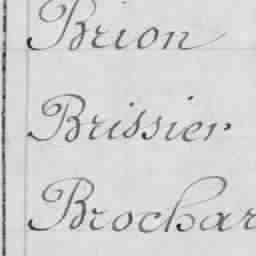 Brion
Brissier
Brochar